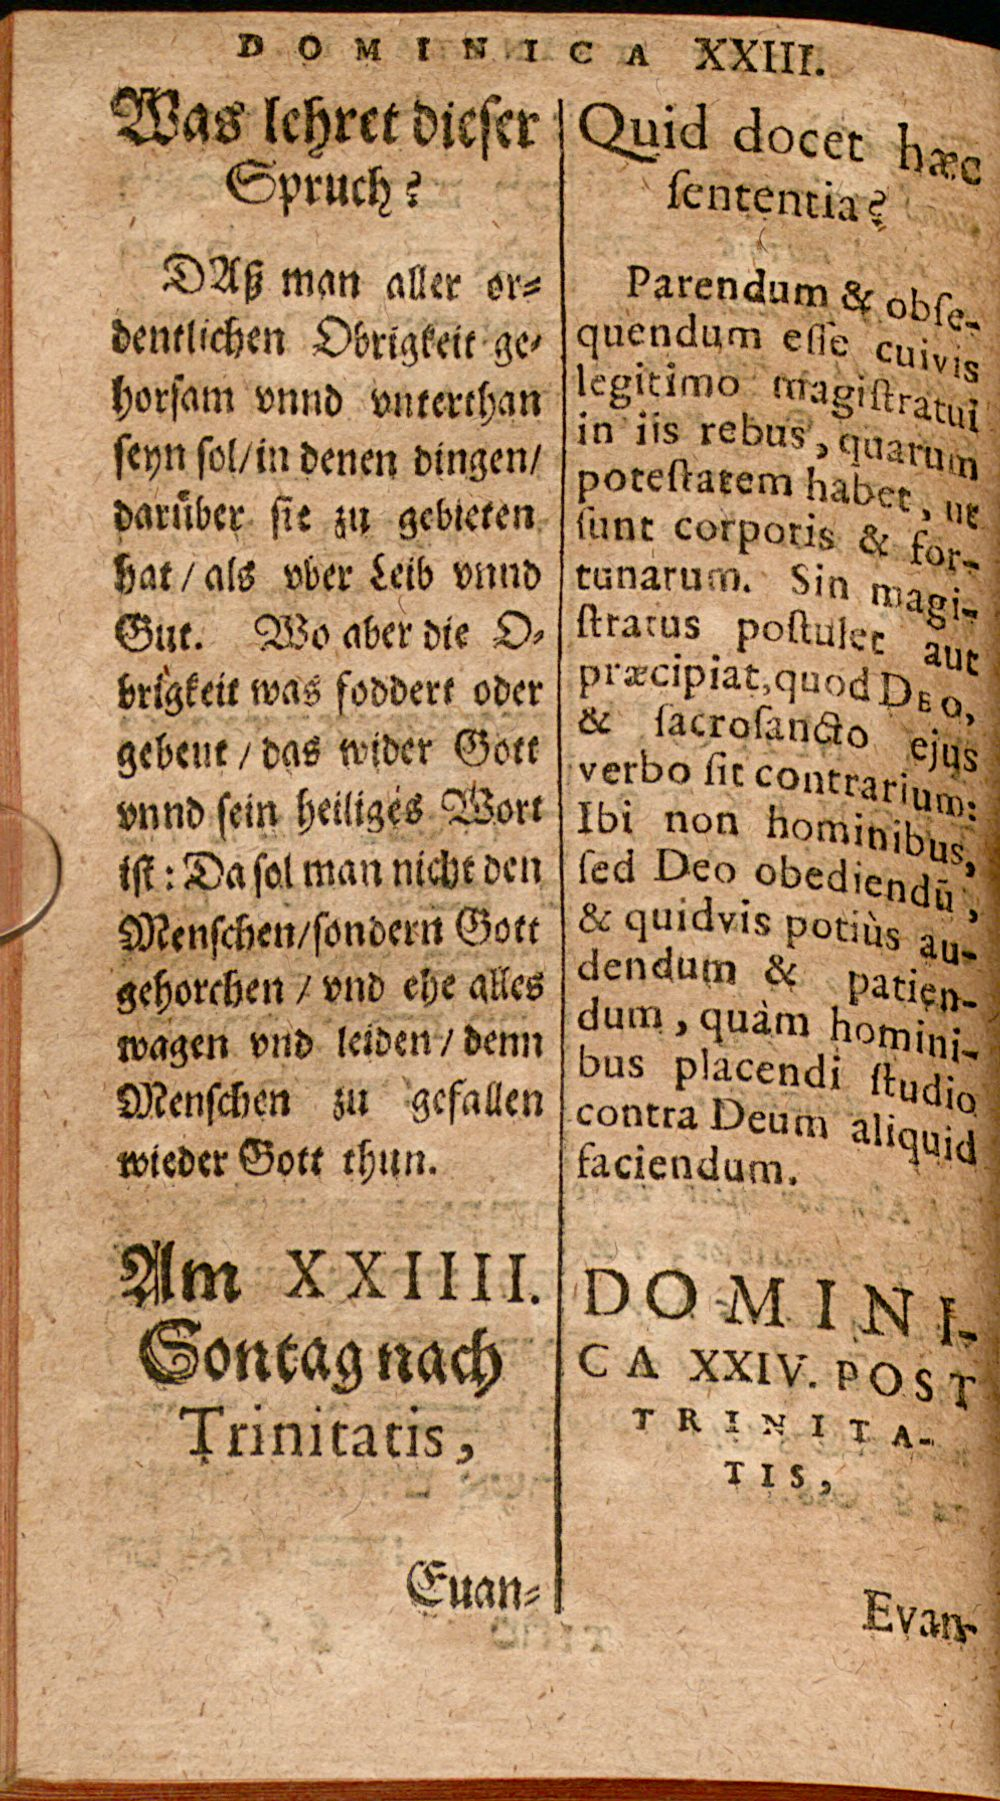 DOMINICA XXIII.
Was lehret dieser
Spruch?
DAß man aller or⸗
dentlichen Obrigkeit ge⸗
horsam vnnd vnterthan
seyn sol/in denen dingen/
darüber sie zu gebieten
hat/als vber Leib vnnd
Gut. Wo aber die O⸗
brigkeit was foddert oder
gebeut/das wider Gott
vnnd sein heiliges Wort
ist: Da sol man nicht den
Menschen/sondern Gott
gehorchen/vnd ehe alles
wagen vnd leiden/denn
Menschen zu gefallen
wieder Gott thun.
Am XXIIII.
Sontag nach
Trinitatis,
Euan⸗
Quid docet hæc
ſententia?
Parendum & obſe-
quendum eſſe cuivis
legitimo magiſtratui
in iis rebus, quarum
poteſtatem habet, ut
ſunt corporis & for-
tunarum. Sin magi-
ſtratus poſtulet aut
præcipiat, quod DEO,
& ſacroſancto ejus
verbo ſit contrarium:
Ibi non hominibus,
ſed Deo obediendū,
& quidvis potiùs au-
dendum & patien-
dum, quàm homini-
bus placendi ſtudio
contra Deum aliquid
faciendum.
DOMINI-
CA XXIV. POST
TRINITA-
TIS,
Evan-